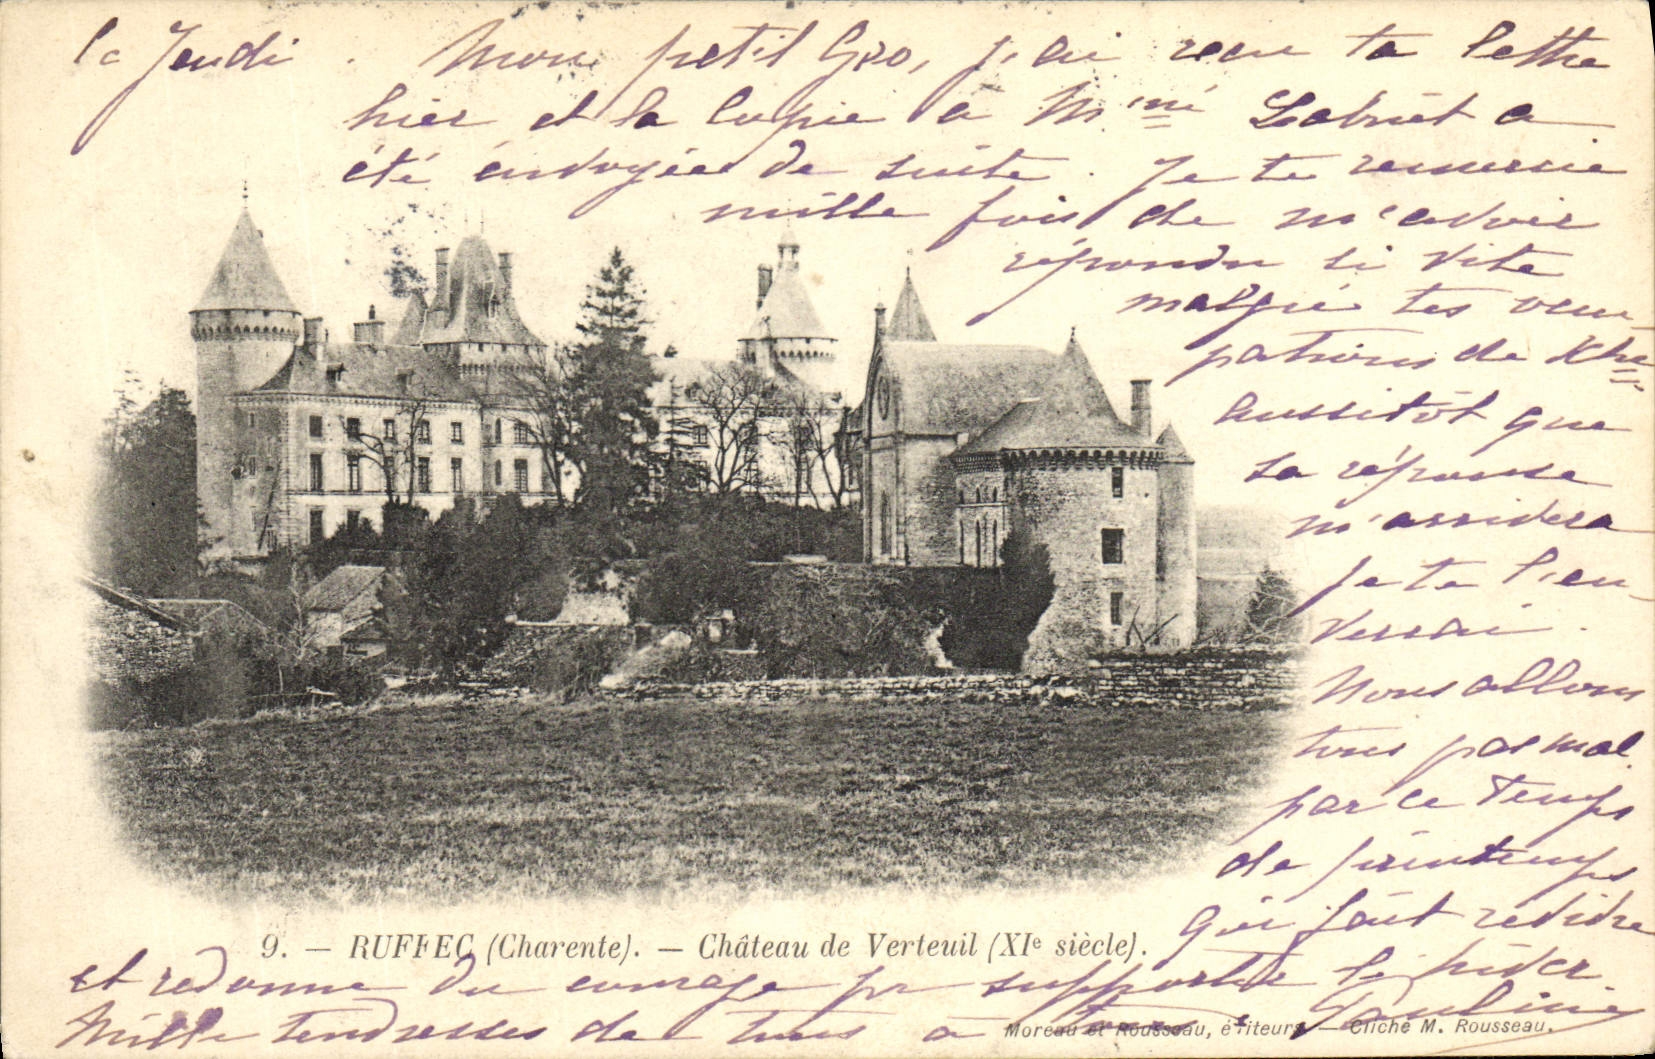 le Jeudi. Mon petit Geo, j'ai recu ta lettre
hier et la copie à Mme Labriet a
été envoyée de suite. Je te remercie
mille fois de m'avoir
répondu si vite
malgré tes occu-
pations de
aussitôt que
sa réponse
m'arrivera
je te l'en-
verrai.
Nous allons
tous pas mal
par ce temps
de printemps
qui fait revivre
et redonne du courage pr supporter l'hiver
Mille tendresses de tous à tous Pauline
9. — RUFFEC (Charente). — Château de Verteuil (XIe siècle).
Moreau et Rousseau, éditeurs — Cliché M. Rousseau.